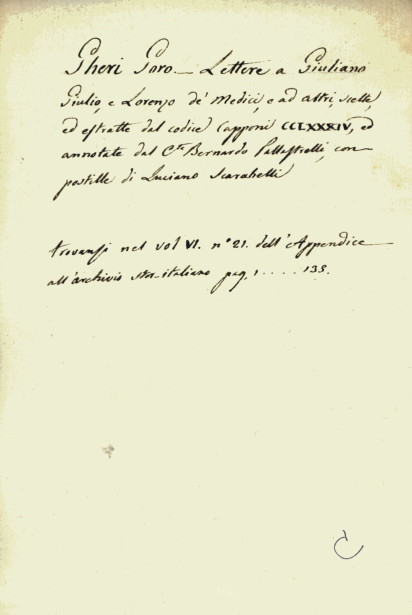 Gheri Goro — Lettere a Giuliano
Giulio, e Lorenzo de' Medici, e ad altri, scelte,
ed estratte dal codice Capponi CCLXXXIV, ed
annotate dal Cte Bernardo Pallastrelli, con
postille di Luciano Scarabelli
trovansi nel vol VI. n° 21. dell'Appendice
all'archivio sto-italiano pag. 1 . . . . 135.